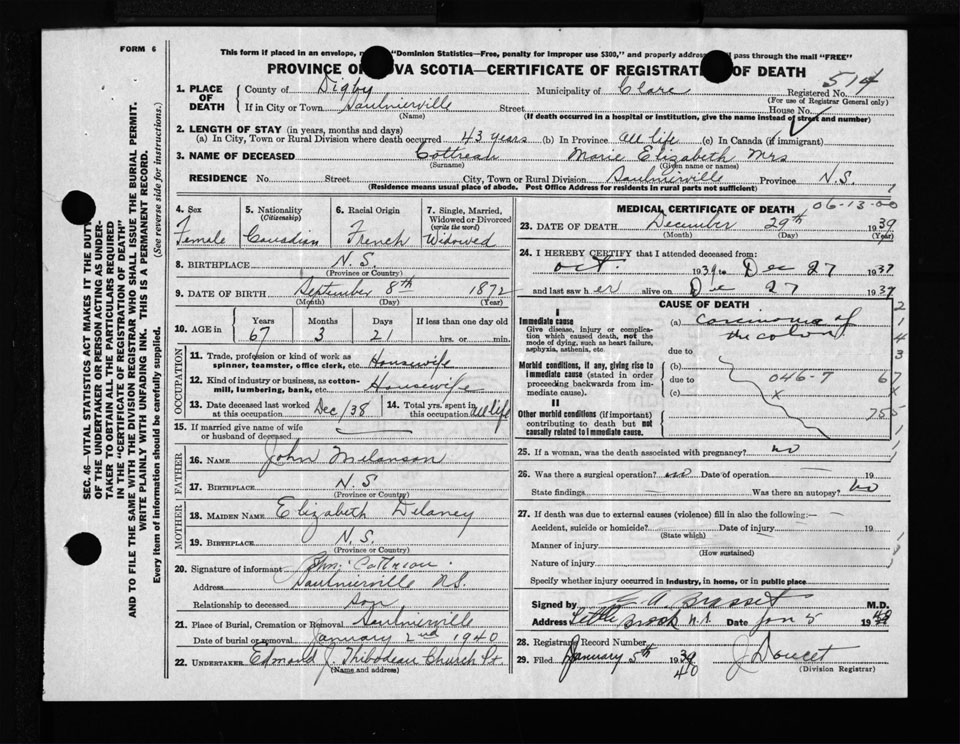 FORM 6
This form if placed in an envelope, "Dominion Statistics—Free, penalty for improper use $300," and properly address pass through the mail "FREE"
PROVINCE OF NOVA SCOTIA—CERTIFICATE OF REGISTRATION OF DEATH
514
1. PLACE OF DEATH County of Digby Municipality of Clare Registered No.
(For use of Registrar General only)
If in City or Town Saulnierville Street House No.
(Name) (If death occurred in a hospital or institution, give the name instead of street and number)
2. LENGTH OF STAY (in years, months and days)
(a) In City, Town or Rural Division where death occurred 43 years (b) In Province all life (c) In Canada (if immigrant)
3. NAME OF DECEASED Cottreau Marie Elizabeth Mrs
(Surname) (Given name or names)
RESIDENCE No. Street City, Town or Rural Division Saulnierville Province N.S.
(Residence means usual place of abode. Post Office Address for residents in rural parts not sufficient)
4. Sex Female
5. Nationality (Citizenship) Canadian
6. Racial Origin French
7. Single, Married, Widowed or Divorced (write the word) Widowed
8. BIRTHPLACE N.S.
(Province or Country)
9. DATE OF BIRTH September 8th 1872
(Month) (Day) (Year)
10. AGE in Years Months Days If less than one day old
67 3 21 hrs. or min.
OCCUPATION
11. Trade, profession or kind of work as spinner, teamster, office clerk, etc. Housewife
12. Kind of industry or business, as cotton-mill, lumbering, bank, etc. Housewife
13. Date deceased last worked at this occupation Dec/38
14. Total yrs. spent in this occupation all life
15. If married give name of wife or husband of deceased
FATHER
16. NAME John Melanson
17. BIRTHPLACE N.S.
(Province or Country)
MOTHER
18. MAIDEN NAME Elizabeth Delaney
19. BIRTHPLACE N.S.
(Province or Country)
20. Signature of informant Cottreau
Address Saulnierville N.S.
Relationship to deceased son
21. Place of Burial, Cremation or Removal Saulnierville
Date of burial or removal January 2nd 1940
22. UNDERTAKER Edmond J. Thibodeau Church Pt.
(Name and address)
MEDICAL CERTIFICATE OF DEATH 06-13-00
23. DATE OF DEATH December 29th 1939
(Month) (Day) (Year)
24. I HEREBY CERTIFY that I attended deceased from:
Oct. 1939 to Dec 27 1939
and last saw her alive on Dec 27 1939
CAUSE OF DEATH
I
Immediate cause
Give disease, injury or complication which caused death, not the mode of dying, such as heart failure, asphyxia, asthenia, etc.
(a) Carcinoma of the colon
due to
Morbid conditions, if any, giving rise to immediate cause (stated in order proceeding backwards from immediate cause).
(b)
due to 046-9
(c) x
II
Other morbid conditions (if important) contributing to death but not causally related to immediate cause.
25. If a woman, was the death associated with pregnancy? no
26. Was there a surgical operation? no Date of operation 19
State findings Was there an autopsy? no
27. If death was due to external causes (violence) fill in also the following:—
Accident, suicide or homicide? Date of injury 19
(State which)
Manner of injury
(How sustained)
Nature of injury
Specify whether injury occurred in industry, in home, or in public place
Signed by A. Brasset M.D.
Address Little Brook N.S. Date Jan 5 1940
28. Registrar Record Number
29. Filed January 5th 1939 40 J Doucet
(Division Registrar)
SEC. 46—VITAL STATISTICS ACT MAKES IT THE DUTY
OF THE UNDERTAKER OR PERSON ACTING AS UNDER-
TAKER TO OBTAIN ALL THE PARTICULARS REQUIRED
IN THE "CERTIFICATE OF REGISTRATION OF DEATH"
AND TO FILE THE SAME WITH THE DIVISION REGISTRAR WHO SHALL ISSUE THE BURIAL PERMIT.
WRITE PLAINLY WITH UNFADING INK. THIS IS A PERMANENT RECORD.
Every item of information should be carefully supplied. (See reverse side for instructions.)